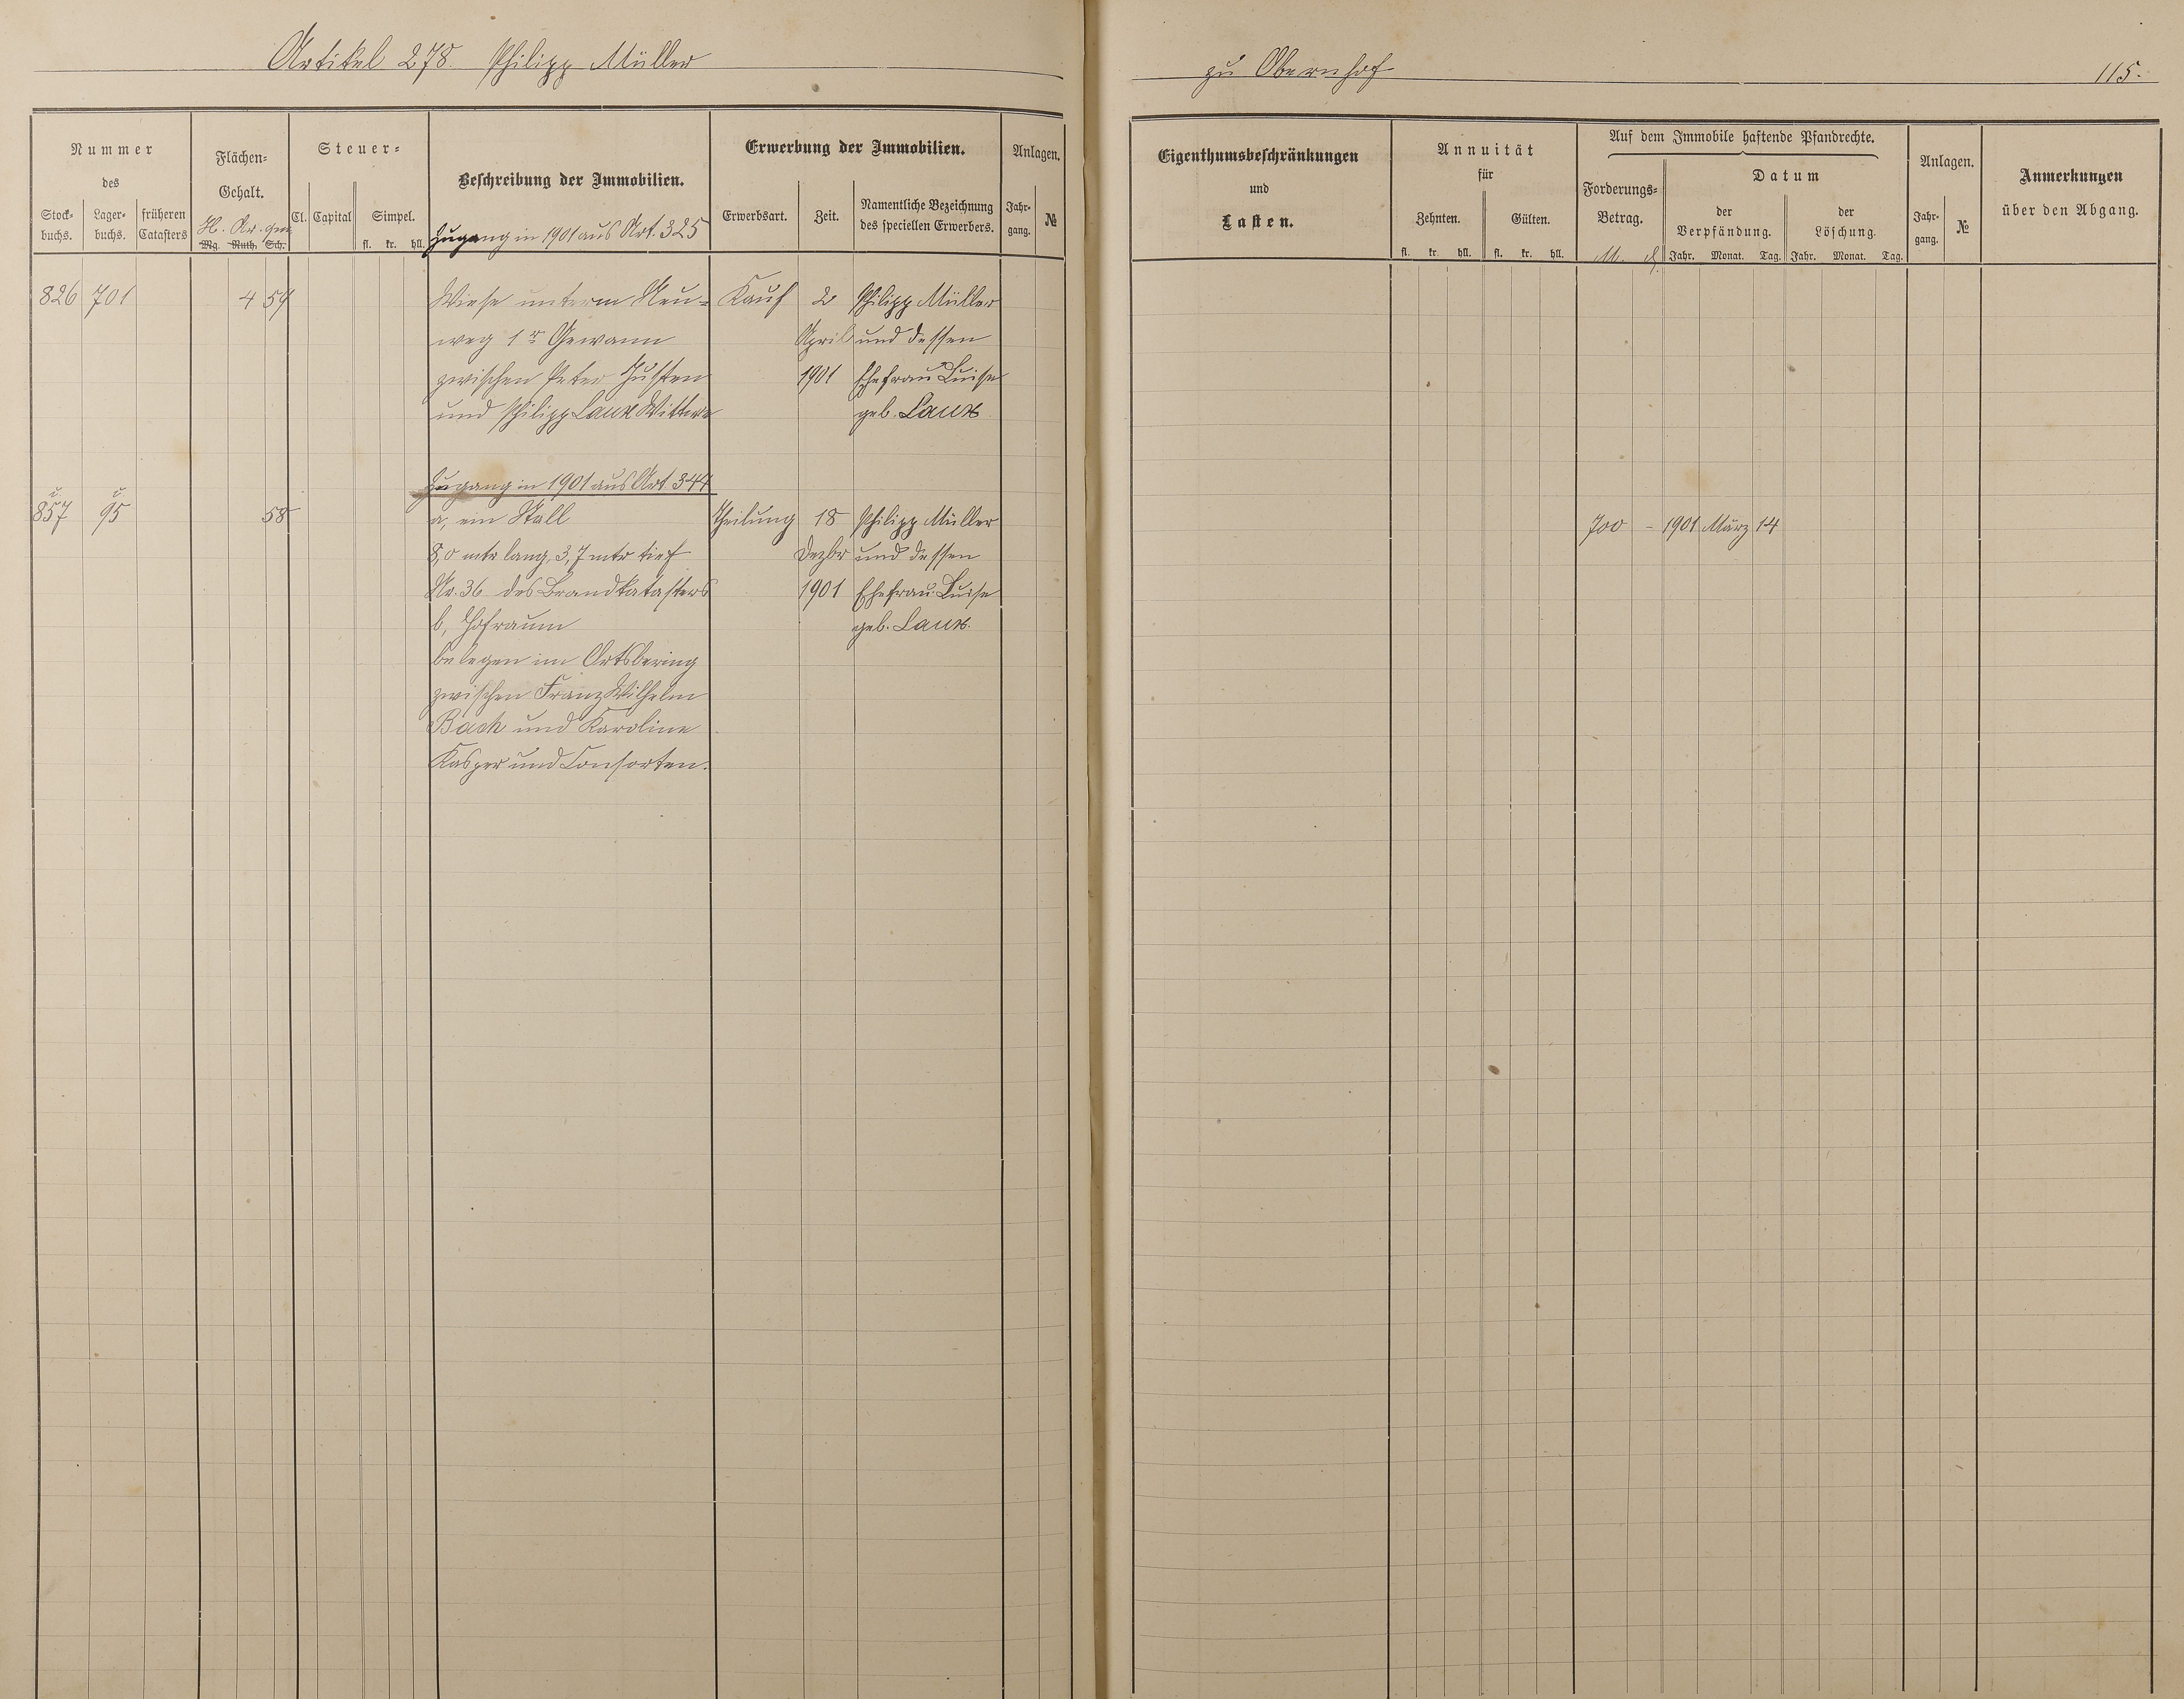 Artikel 278. Philipp Müller
Nummer
des
Stock-
buchs.
Lager-
buchs.
früheren
Catasters
Flächen-
Gehalt.
H. Ar. qm
Mg. Ruth. Sch.
Steuer-
Cl. Capital Simpel.
fl. kr. hll.
Beschreibung der Immobilien.
Zugang in 1901 aus Art. 325
Erwerbung der Immobilien.
Erwerbsart. Zeit.
Namentliche Bezeichnung
des speciellen Erwerbers.
Anlagen.
Jahr-
gang.
№
826 701 4 59 Wiese unterm Neu- Kauf 2 Philipp Müller
weg 1r Gewann April und dessen
zwischen Peter Husten 1901 Ehefrau Luise
und Philipp Laux Wittwe geb. Laux
Zugang in 1901 aus Art. 344
u. u.
857 95 58 a, ein Stall Theilung 18 Philipp Müller
8,0 mtr lang, 3,7 mtr tief Dezbr und dessen
Nr. 36 des Brandkatasters 1901 Ehefrau Luise
b, Hofraum geb. Laux.
belegen im Ortsbering
zwischen Franz Wilhelm
Bach und Karoline
Kasper und Consorten.
zu Obernhof 115.
Eigenthumsbeschränkungen
und
Lasten.
Annuität
für
Zehnten. Gülten.
fl. kr. hll. fl. kr. hll.
Auf dem Immobile haftende Pfandrechte.
Forderungs-
Betrag.
M. ₰
Datum
der
Verpfändung.
Jahr. Monat. Tag.
der
Löschung.
Jahr. Monat. Tag.
Anlagen.
Jahr-
gang.
№
Anmerkungen
über den Abgang.
700 - 1901 März 14